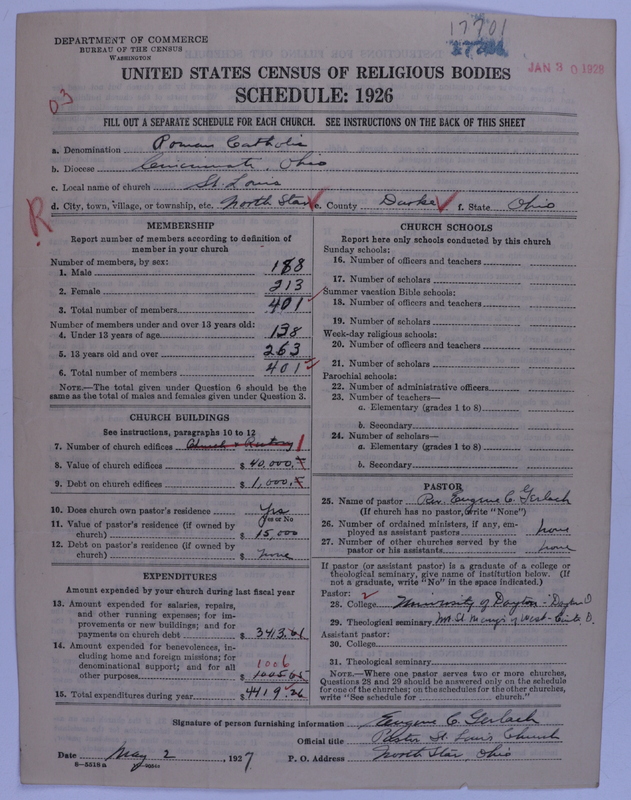 17701
DEPARTMENT OF COMMERCE
BUREAU OF THE CENSUS
WASHINGTON
JAN 30 1928
UNITED STATES CENSUS OF RELIGIOUS BODIES
SCHEDULE: 1926
03
FILL OUT A SEPARATE SCHEDULE FOR EACH CHURCH. SEE INSTRUCTIONS ON THE BACK OF THIS SHEET
a. Denomination Roman Catholic
b. Diocese Cincinnati, Ohio
c. Local name of church St. Louis
d. City, town, village, or township, etc. North Star e. County Darke f. State Ohio
R
MEMBERSHIP
Report number of members according to definition of
member in your church
Number of members, by sex:
1. Male 188
2. Female 213
3. Total number of members 401
Number of members under and over 13 years old:
4. Under 13 years of age 138
5. 13 years old and over 263
6. Total number of members 401
NOTE.—The total given under Question 6 should be the
same as the total of males and females given under Question 3.
CHURCH BUILDINGS
See instructions, paragraphs 10 to 12
7. Number of church edifices Church + Rectory 1
8. Value of church edifices $ 40,000.
9. Debt on church edifices $ 1,000.
10. Does church own pastor's residence Yes
Yes or No
11. Value of pastor's residence (if owned by
church) $ 15,000
12. Debt on pastor's residence (if owned by
church) $ none
EXPENDITURES
Amount expended by your church during last fiscal year
13. Amount expended for salaries, repairs,
and other running expenses; for im-
provements or new buildings; and for
payments on church debt $ 3413.61
14. Amount expended for benevolences, in-
cluding home and foreign missions; for
denominational support; and for all 1006
other purposes $ 1005.65
15. Total expenditures during year $ 4419.26
CHURCH SCHOOLS
Report here only schools conducted by this church
Sunday schools:
16. Number of officers and teachers
17. Number of scholars
Summer vacation Bible schools:
18. Number of officers and teachers
19. Number of scholars
Week-day religious schools:
20. Number of officers and teachers
21. Number of scholars
Parochial schools:
22. Number of administrative officers
23. Number of teachers—
a. Elementary (grades 1 to 8)
b. Secondary
24. Number of scholars—
a. Elementary (grades 1 to 8)
b. Secondary
PASTOR
25. Name of pastor Rev. Eugene C. Gerlach
(If church has no pastor, write "None")
26. Number of ordained ministers, if any, em-
ployed as assistant pastors none
27. Number of other churches served by the
pastor or his assistants none
If pastor (or assistant pastor) is a graduate of a college or
theological seminary, give name of institution below. (If
not a graduate, write "No" in the space indicated.)
Pastor: 2
28. College University of Dayton - Dayton O
29. Theological seminary Mt. St. Mary's of West - Cinti, O.
Assistant pastor:
30. College
31. Theological seminary
NOTE.—Where one pastor serves two or more churches,
Questions 28 and 29 should be answered only on the schedule
for one of the churches; on the schedules for the other churches,
write "See schedule for church."
Signature of person furnishing information Eugene C. Gerlach
Official title Pastor St. Louis Church
Date May 2, 1927 P. O. Address North Star, Ohio
8—5518a